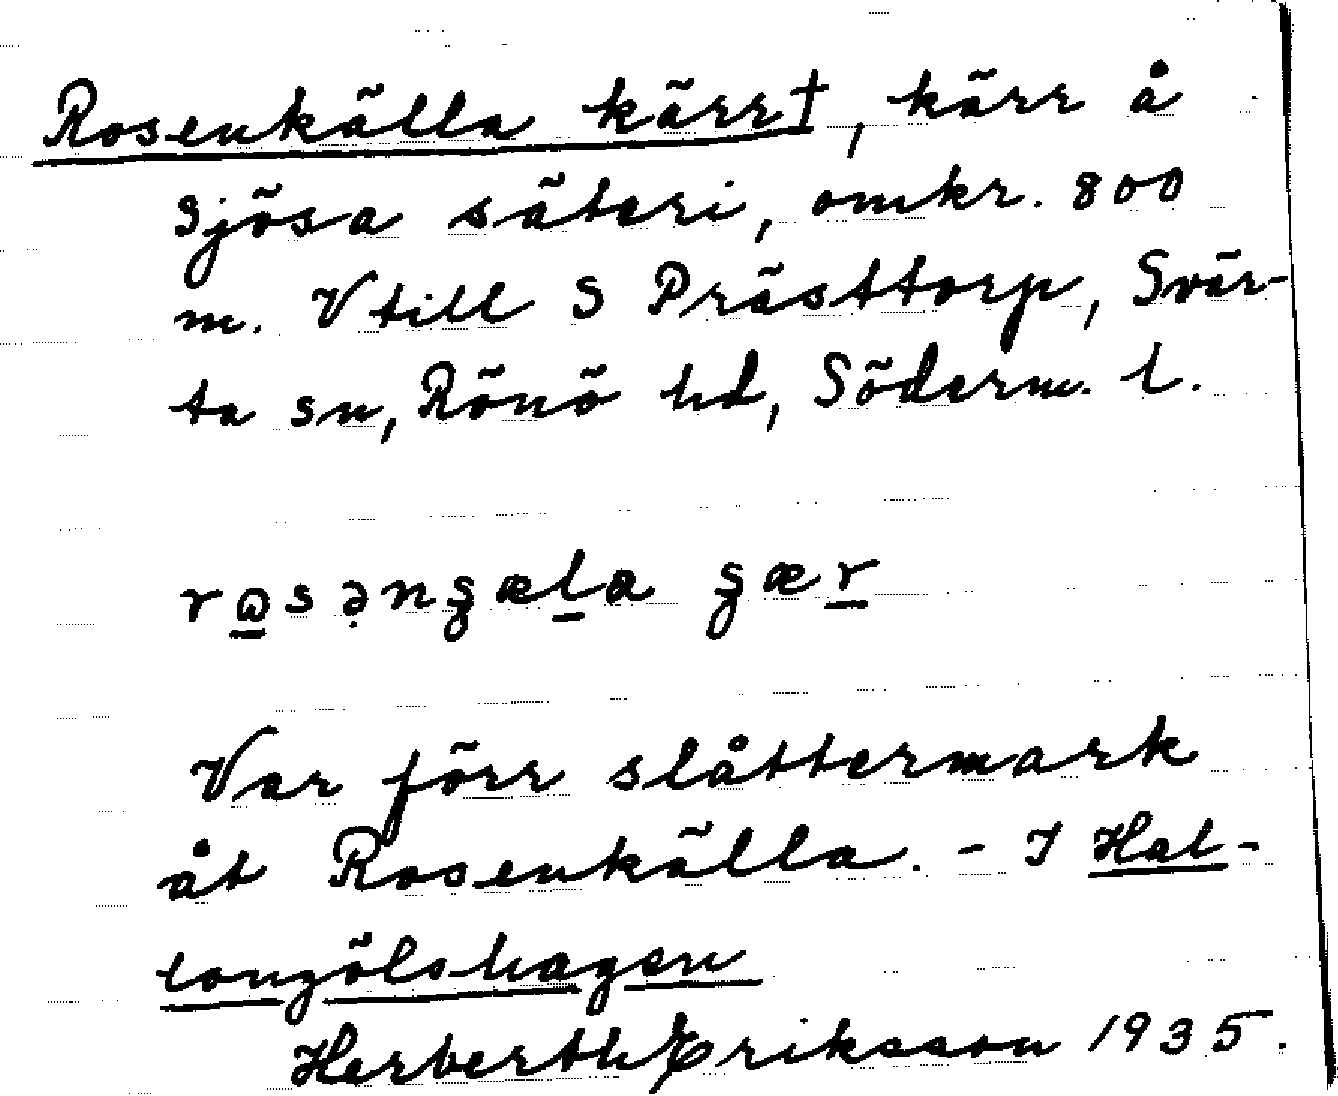 Rosenkälla kärr†, kärr å
Sjösa säteri, omkr. 800
m. V till S Prästtorp, Svär-
ta sn, Rönö hd, Söderm. l.
rɷsəngæla gær
Var förr slåttermark
åt Rosenkälla. - I Hal-
longölshagen
Herberth Eriksson 1935.